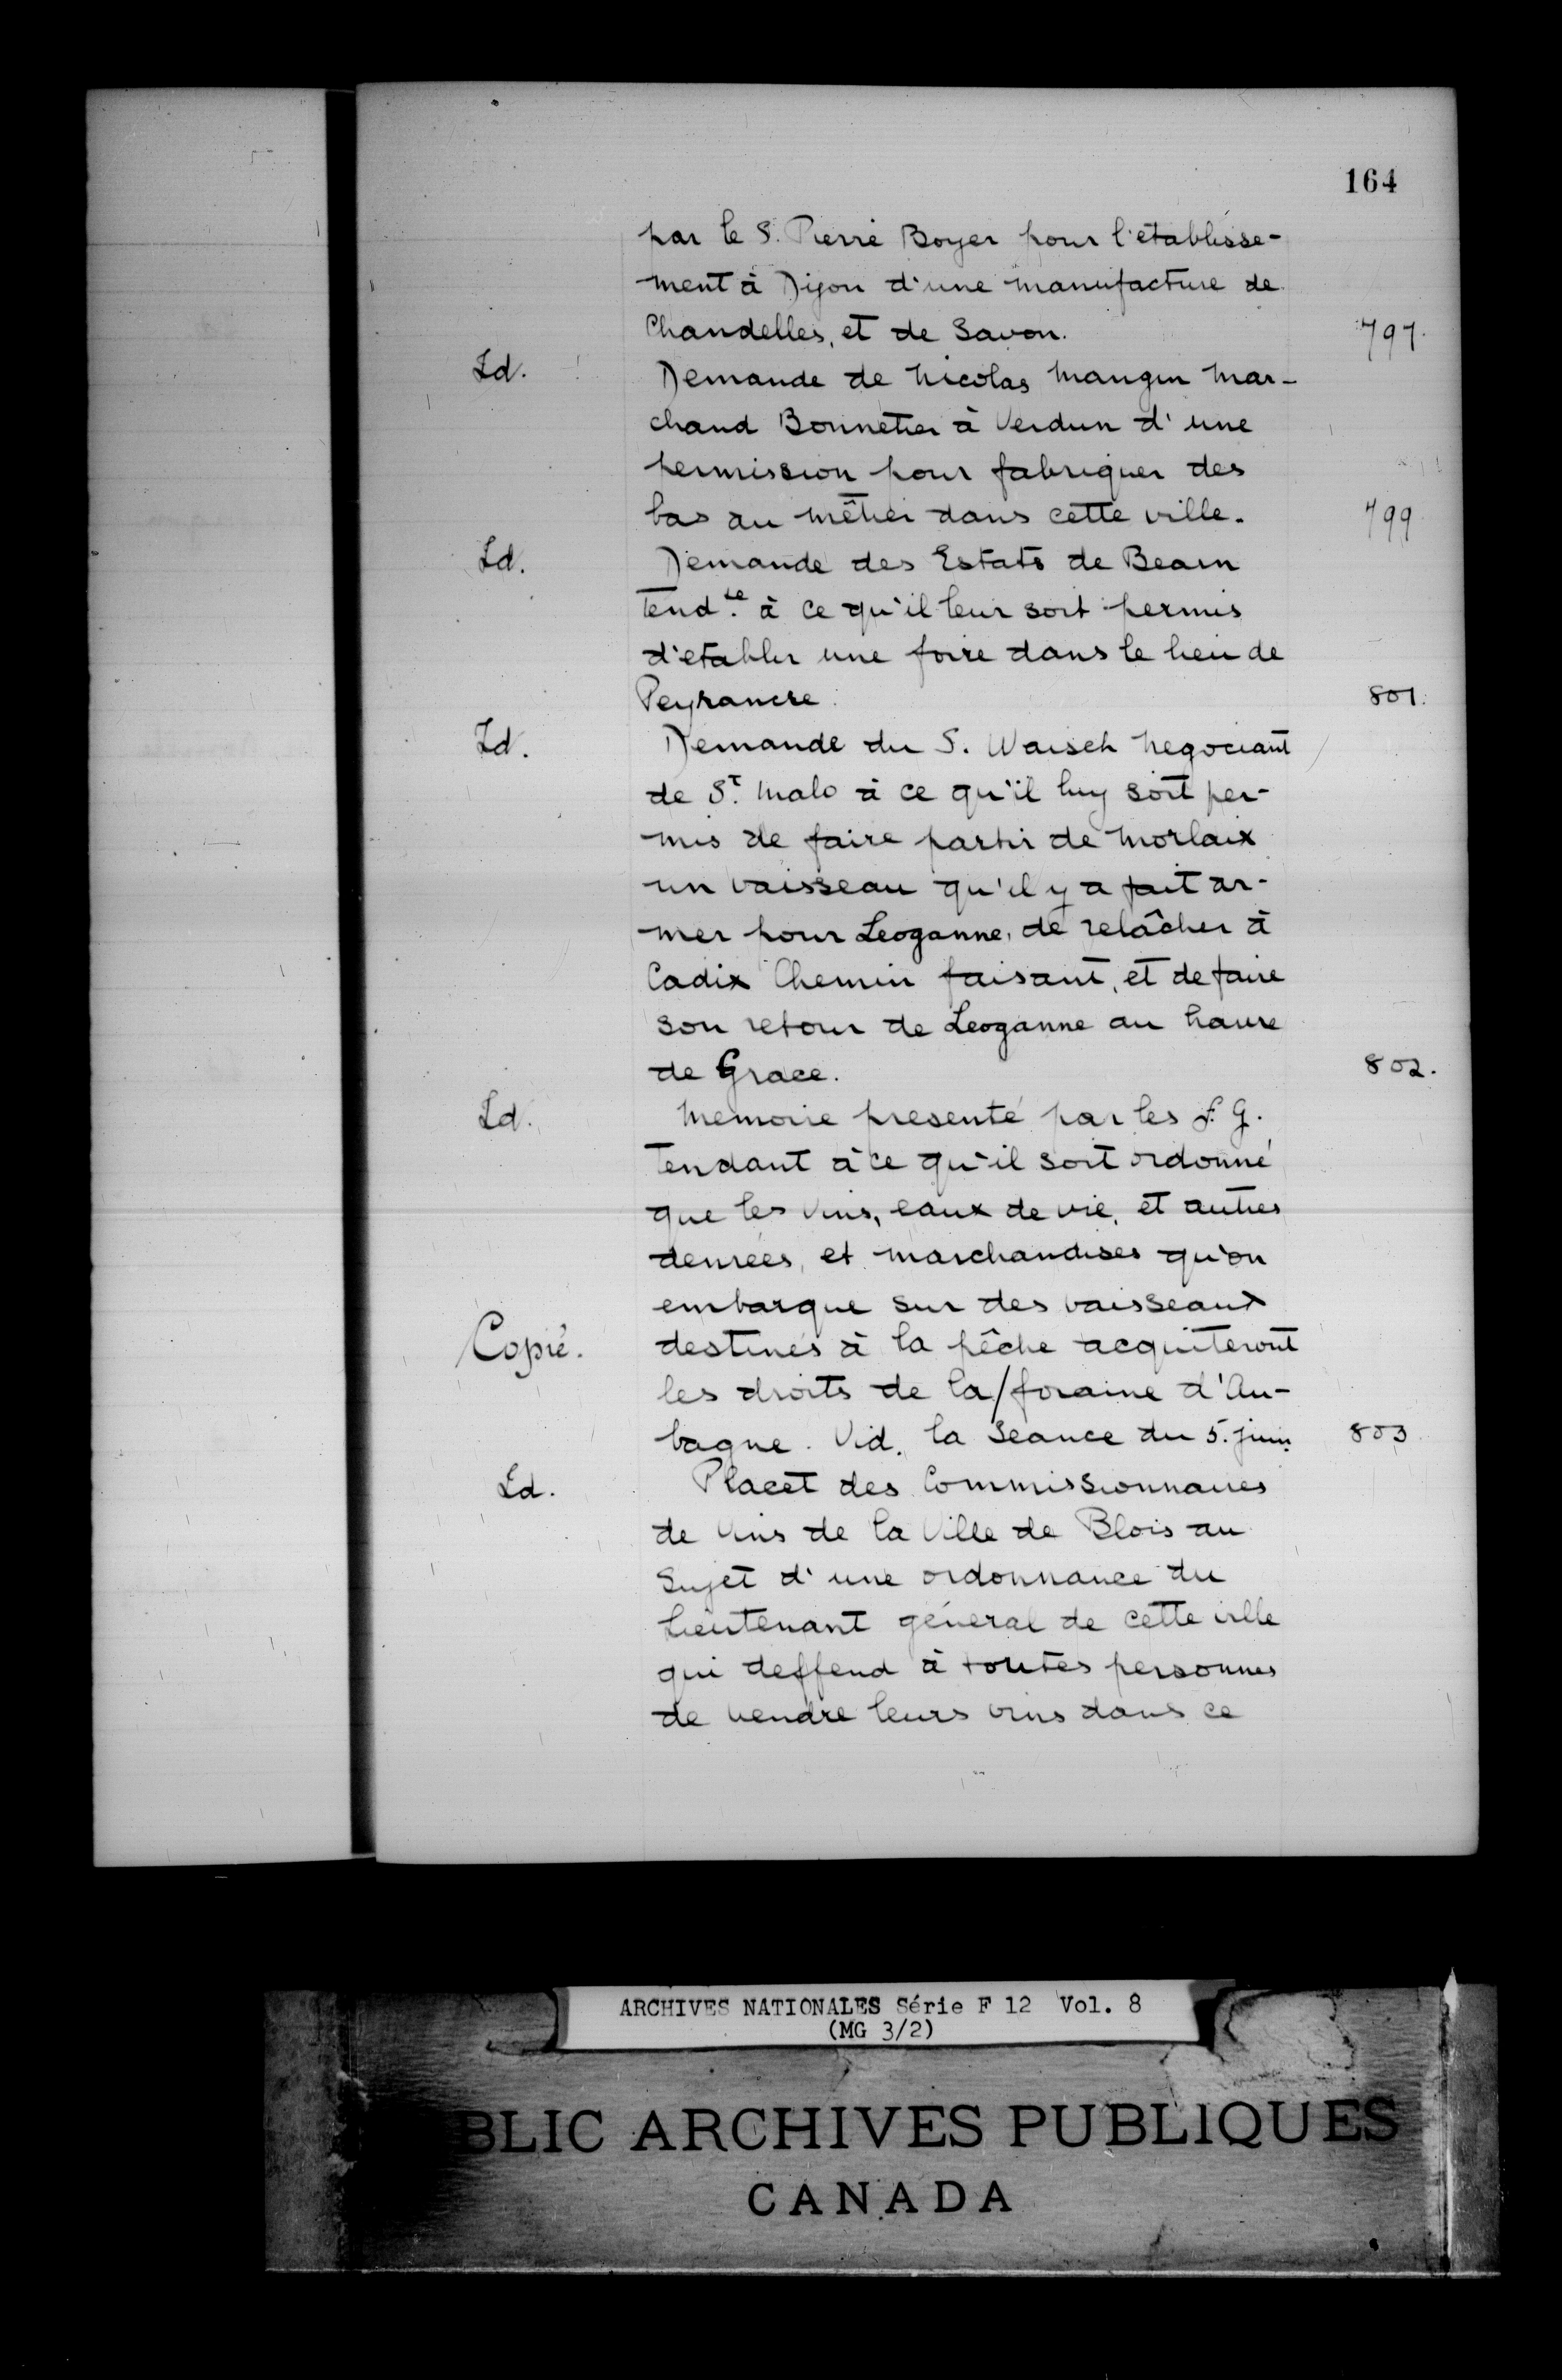 164
par le S. Pierre Boyer pour l'établisse-
ment à Dijon d'une manufacture de
Chandelles, et de Savon. 797.
Id. Demande de Nicolas Mangin Mar-
chand Bonnetier à Verdun d'une
permission pour fabriquer des
bas au mêtier dans cette ville. 799
Id. Demande des Estats de Bearn
Tend.te à ce qu'il leur soit permis
d'etablir une foire dans le lieu de
801.
Id. Demande du S. Waisch Negociant
de St. Malo à ce qu'il luy soit per-
mis de faire partir de Morlaix
un vaisseau qu'il y a fait ar-
mer pour Leoganne, de relâcher à
Cadix Chemin faisant, et de faire
son retour de Leoganne au havre
de Grace. 802.
Id. Memoire presenté par les f. G.
Tendant à ce qu'il soit ordonné
que les Vins, eaux de vie, et autres
denrées, et marchandises qu'on
embarque sur des vaisseaux
Copié. destinés à la pêche acquiteront
les droits de la/foraine d'Au-
bagne. Vid. la Seance du 5. juin. 803
Id. Placet des Commissionnaires
de Vins de la Ville de Blois au
Sujet d'une ordonnance du
Lieutenant général de cette ville
qui deffend à toutes personnes
de vendre leurs vins dans ce
ARCHIVES NATIONALES Série F 12 Vol. 8
(MG 3/2)
BLIC ARCHIVES PUBLIQUES
CANADA